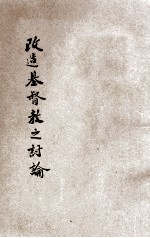 改造基督教之討論